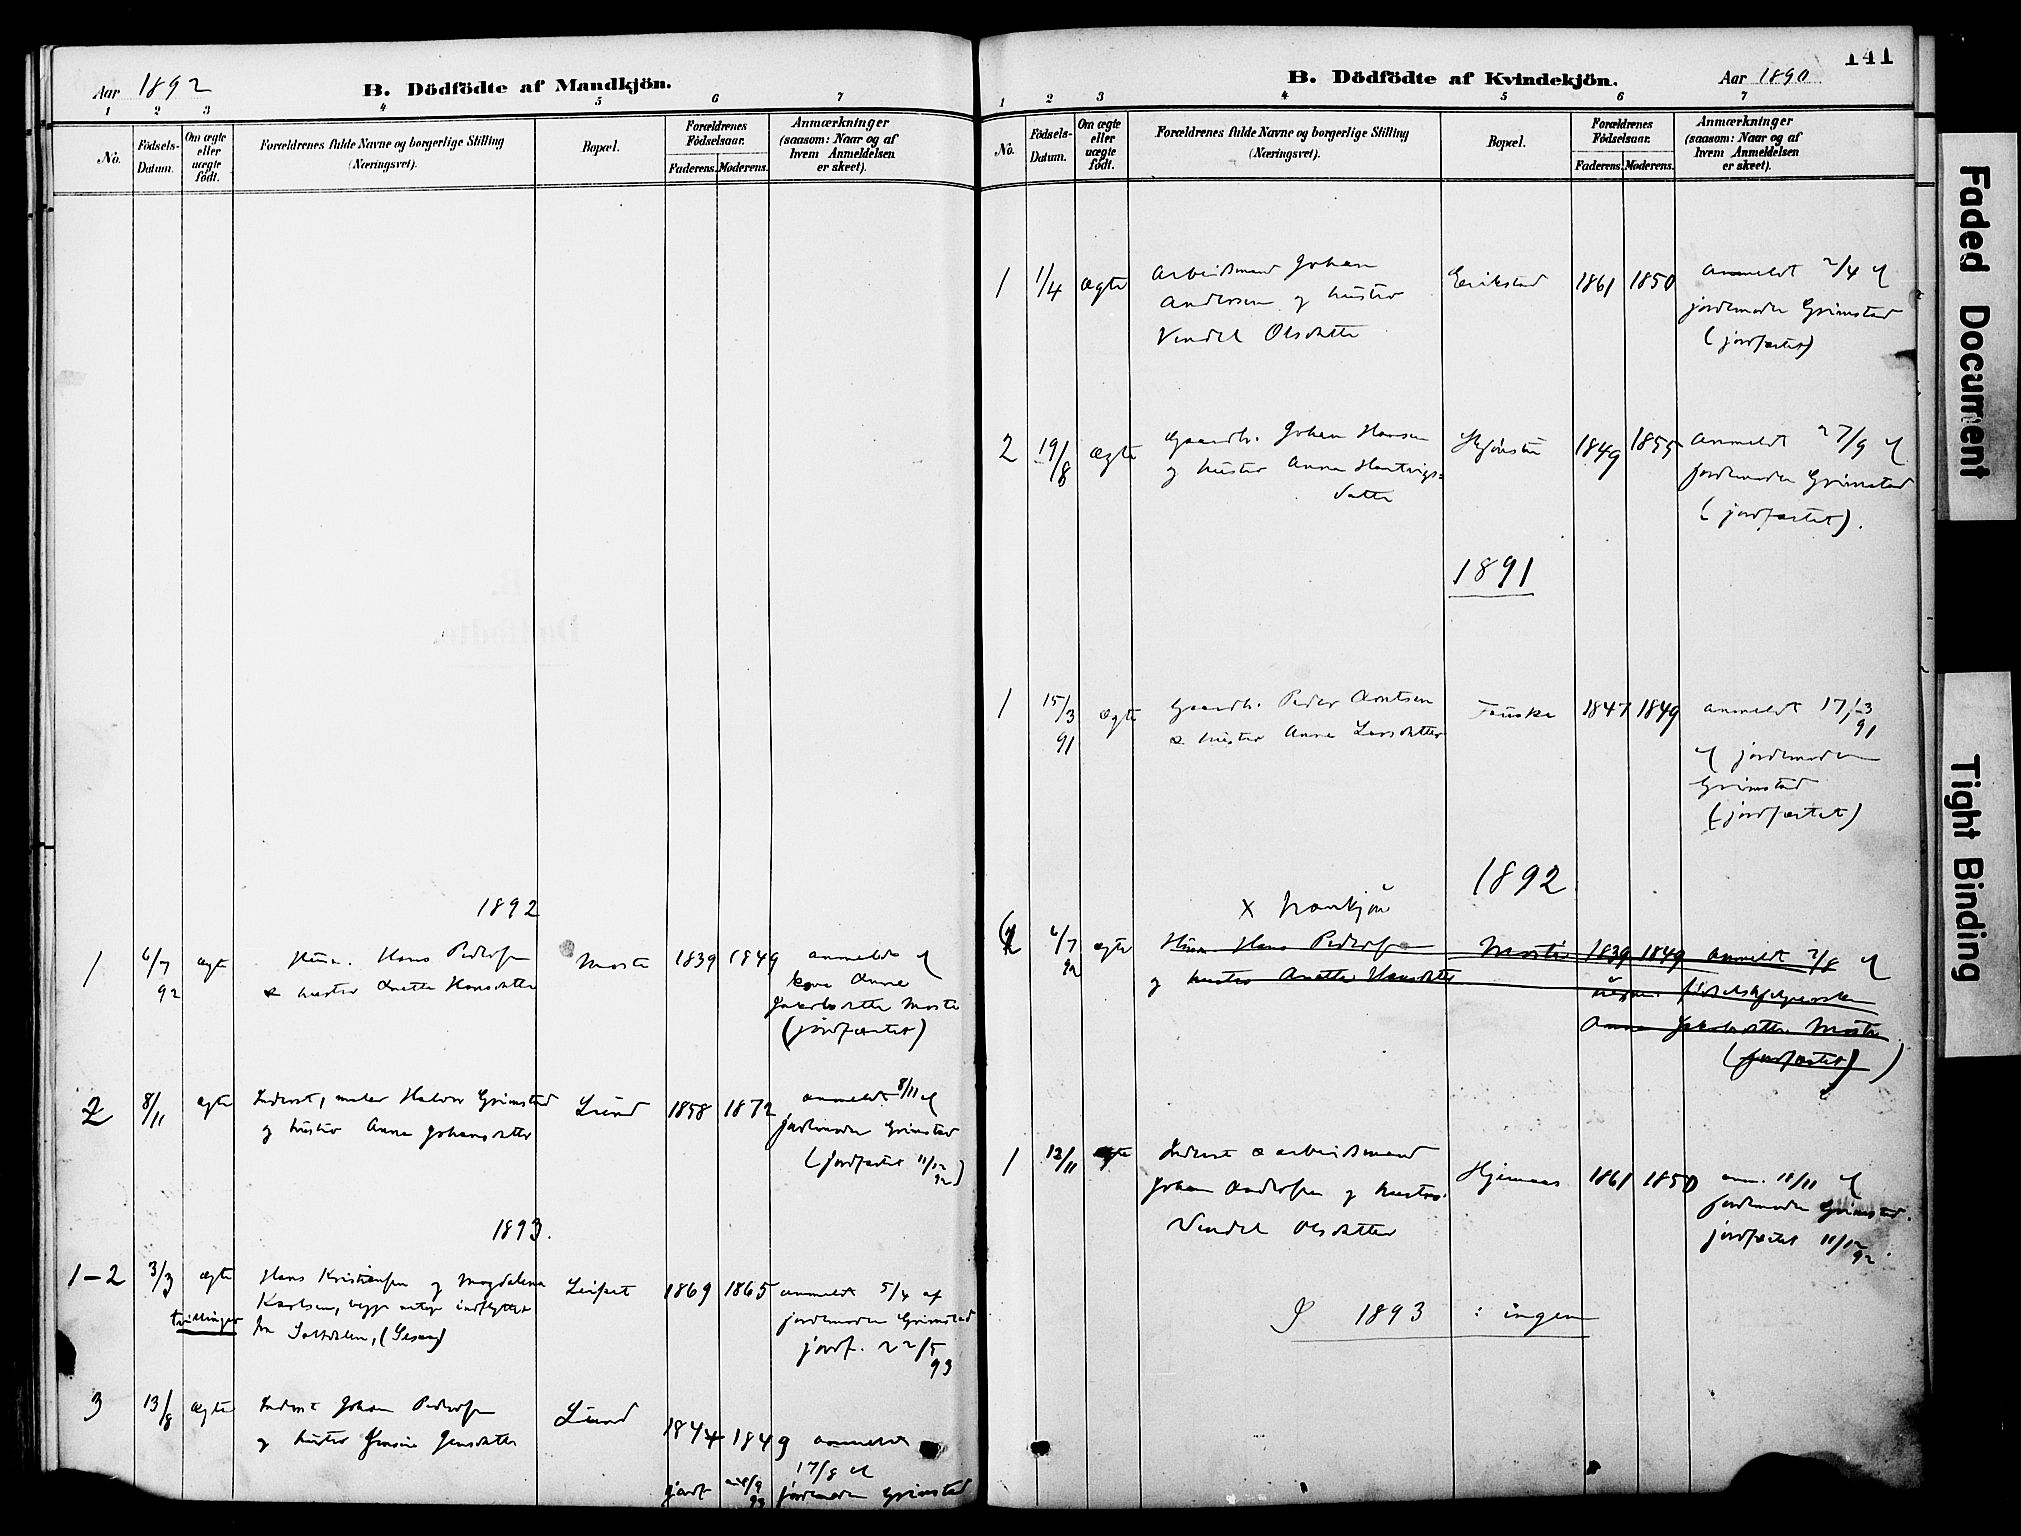 Aar 1892 B. Dödfödte af Mandkjön.
1 2 3 4 5 6 7
No. Födsels-Datum. Om ægte eller uægte födt. Forældrenes fulde Navne og borgerlige Stilling (Næringsvei). Bopæl. Forældrenes Födselsaar. Faderens. Moderens. Anmærkninger (saasom: Naar og af hvem Anmeldelsen er skeet).
1892
1 6/7 92 ægte Hans Pedersen Moste 1839 1849 anmeldt af
& hustru Anette Hansdatter kone Anna
Jakobsdatter Moste
(jordfæstet)
2 8/11 ægte Inderst, maler Halvor Grimstad Lund 1858 1872 anmeldt 8/11 af
og hustru Anna Johansdatter jordemoder Grimstad
(jordfæstet 11/12 92)
1893.
1-2 3/3 ægte Hans Kristiansen og Magdalena Leifset 1869 1865 anmeldt 5/4 af
tvillinger Karlsen, begge indflyttet jordemoder Grimstad
fra Saltdalen, jordf. 22/5 93
3 13/8 ægte Inderst Johan Pedersen Lund 1844 1849 anmeldt
og hustru Jensdatter 17/8 af
jordf. jordemoder Grimstad
141
B. Dödfödte af Kvindekjön. Aar 1890
1 2 3 4 5 6 7
No. Födsels-Datum. Om ægte eller uægte födt. Forældrenes fulde Navne og borgerlige Stilling (Næringsvei). Bopæl. Forældrenes Födselsaar. Faderens. Moderens. Anmærkninger (saasom: Naar og af hvem Anmeldelsen er skeet).
1 1/4 ægte Arbeidsmand Johan Erikstad 1861 1850 Anmeldt 2/4 af
Andersen og hustru jordemoder Grimstad
Vendel Olsdatter (jordfæstet)
2 19/8 ægte Gaardbr. Johan Hansen 1849 1855 Anmeldt 27/9 af
og hustru Anna Hartvigs= jordemoder Grimstad
datter (jordfæstet).
1891
1 15/3 91 ægte Gaardbr. Peder Arntsen Fauske 1847 1849 anmeldt 17/3 91
& hustru Anna Larsdatter af jordemoder
Grimstad
(jordfæstet)
1892
x
6/7 92 ægte Hans Pedersen Moste 1839 1849 anmeldt 2/8 af
og hustru Anette Hansdatter
Anna Jakobsdatter Moste
(jordfæstet)
1 12/11 ægte Inderst & arbeidsmand Hjemaas 1861 1850 anm. 11/11 af
Johan Andersen og hustru jordemoder Grimstad.
Vendel Olsdatter jordfæstet 11/12 92.
I 1893 : ingen
Faded Document
Tight Binding